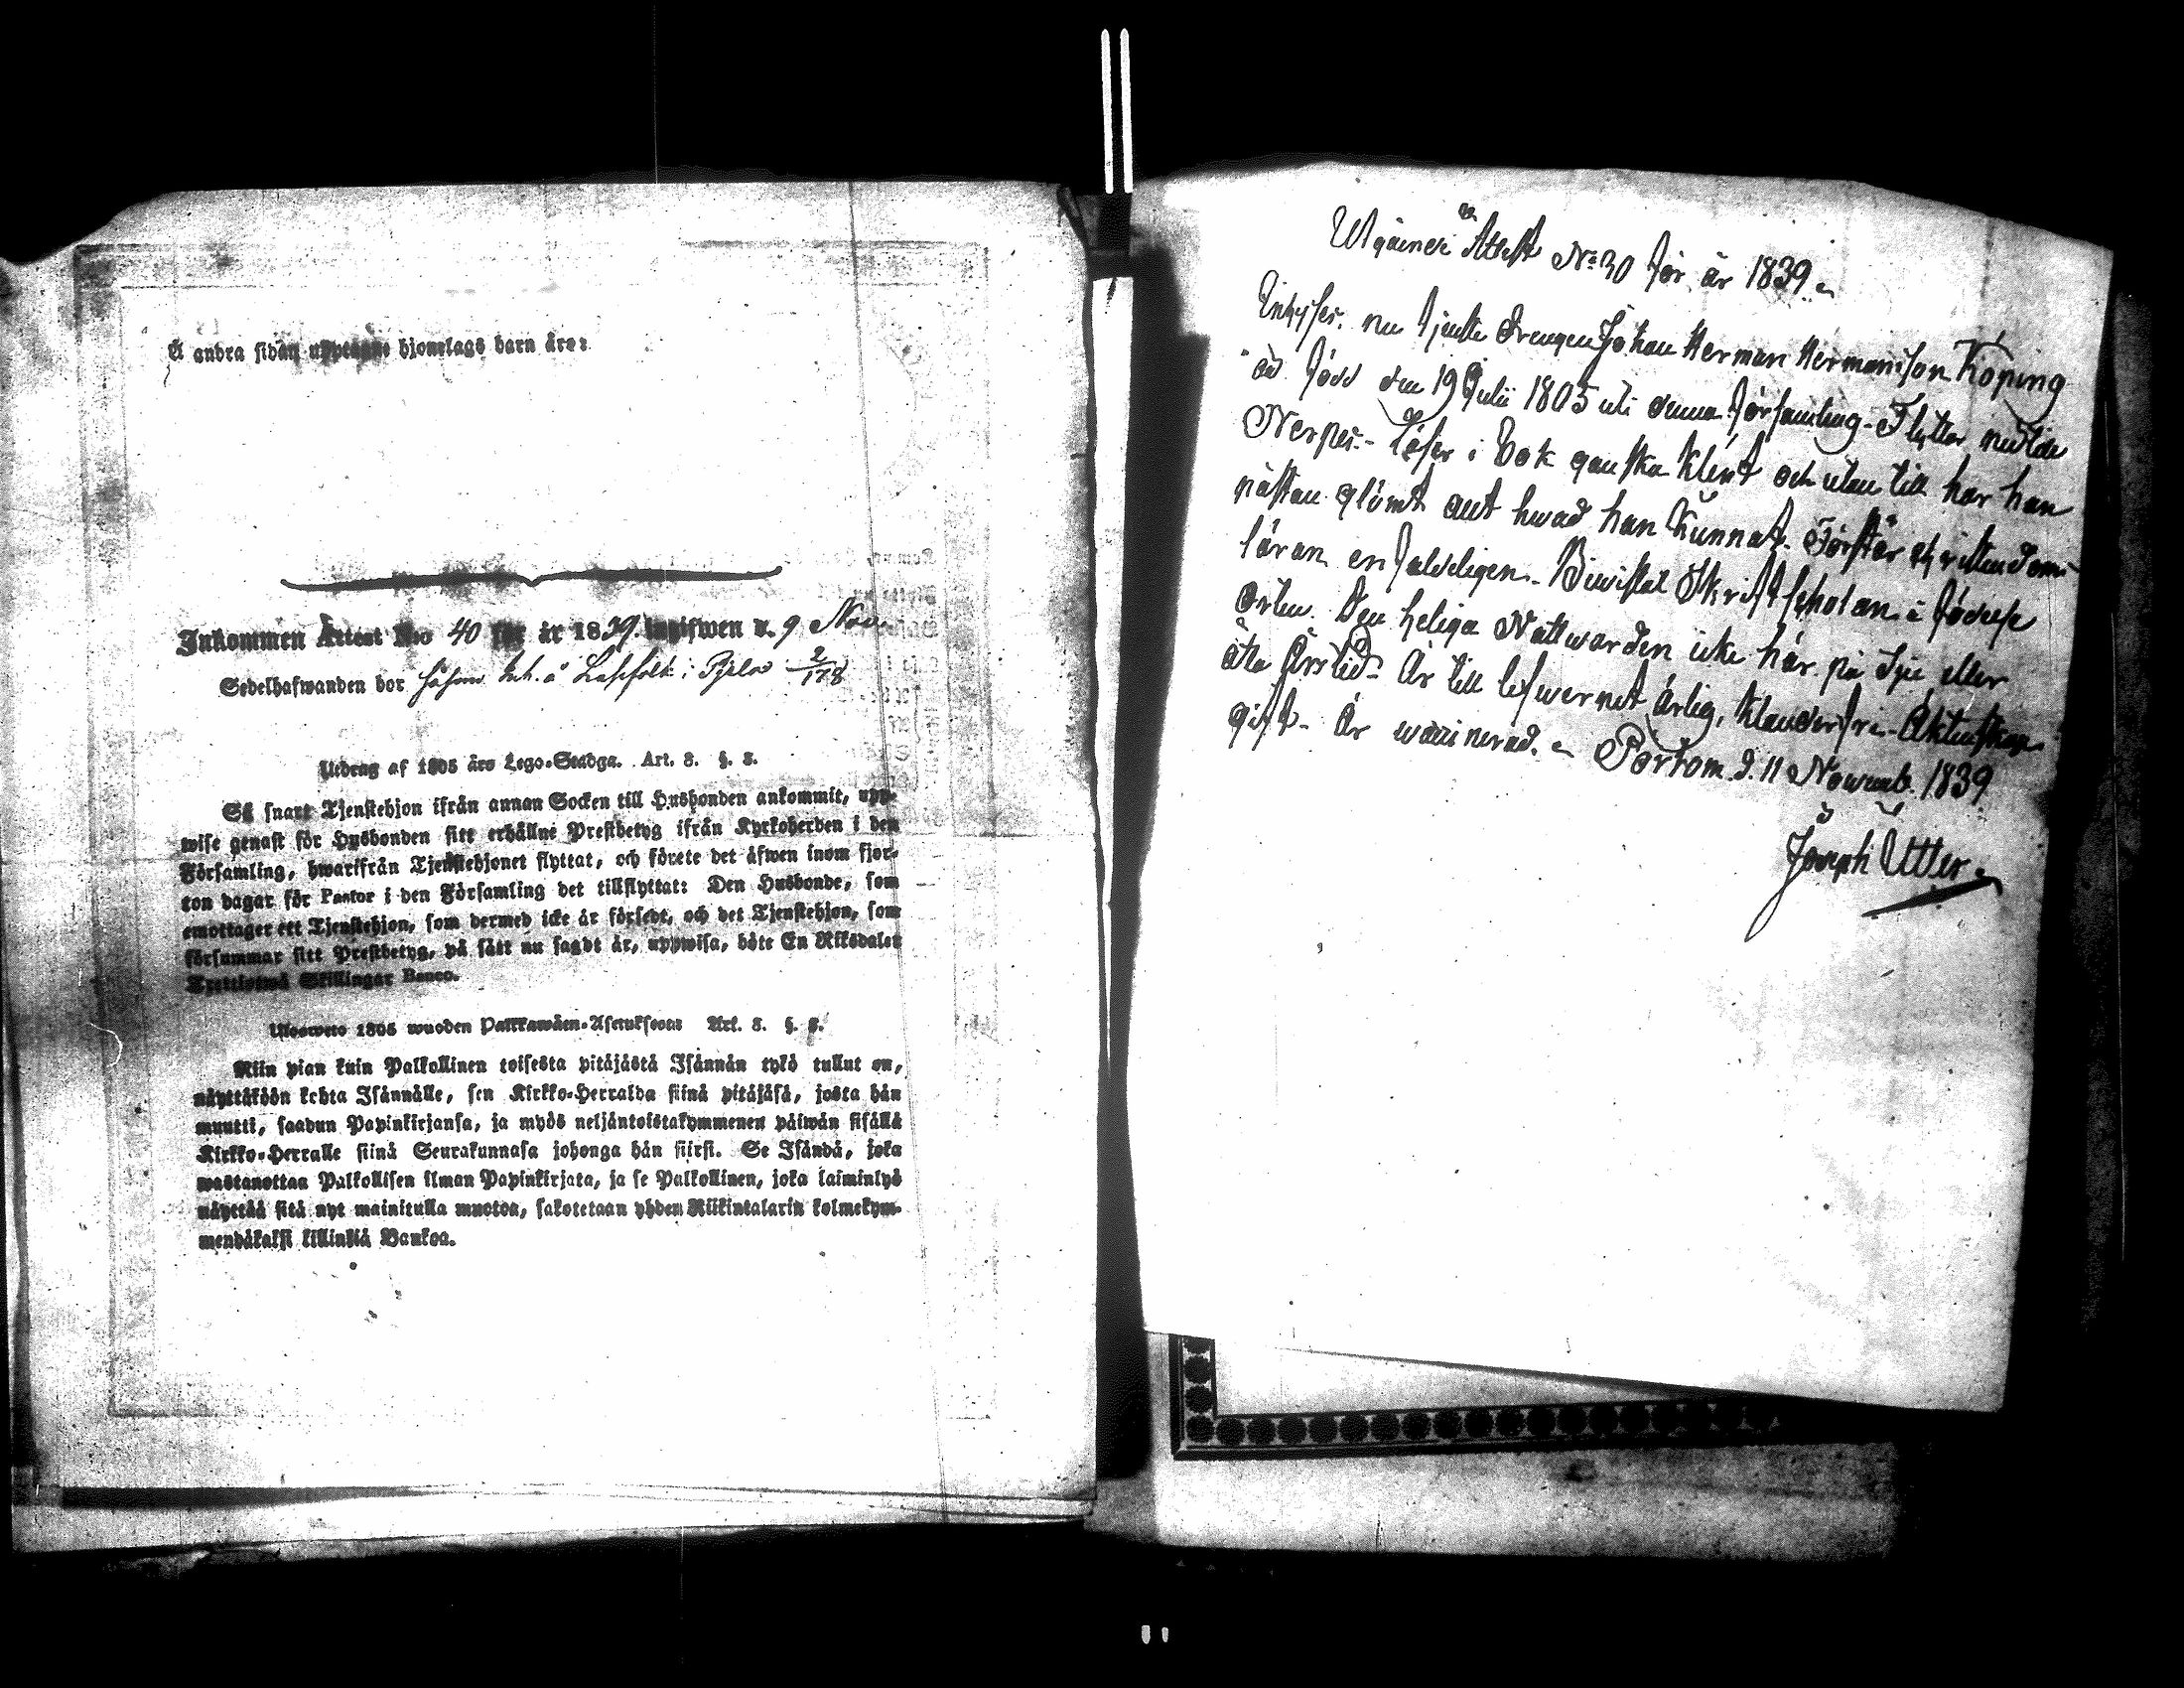 Å andra sidan upptagne hjonelags barn äro:
Inkommen Attest N:o 40 för år 1839. ingifwen d. 9 Nov.
Sedelhafwanden bor i 2/178
Utdrag af 1805 års Lego-Stadga. Art. 8. §. 2.
Så snart Tjenstehjon ifrån annan Socken till Husbonden ankommit, upp-
wise genast för Husbonden sitt erhållne Prestbetyg ifrån Kyrkoherden i den
Församling, hwarifrån Tjenstehjonet flyttat, och förete det äfwen inom fjor-
ton dagar för Pastor i den Församling det tillflyttat: Den Husbonde, som
emottager ett Tjenstehjon, som dermed icke är försedt, och det Tjenstehjon, som
försummar sitt Prestbetyg, på sätt nu sagdt är, uppwisa, böte En Riksdaler
Trettiotwå Skillingar Banco.
Ulosweto 1805 wuoden Palkkawäen-Asetuksesta: Art. 8. §. 2.
Niin pian kuin Palkollinen toisesta pitäjästä Isännän tykö tullut on,
näyttäköön kohta Isännälle, sen Kirkko-Herralda siinä pitäjäsä, josta hän
muutti, saadun Papinkirjansa, ja myös neljäntoistakymmenen päiwän sisällä
Kirkko-Herralle siinä Seurakunnasa johonga hän siirsi. Se Isändä, joka
wastanottaa Palkollisen ilman Papinkirjata, ja se Palkollinen, joka laiminlyö
näyttää sitä nyt mainitulla muotoa, sakotetaan yhden Riikintalarin kolmekym-
mendäkaksi killinkiä Bankoa.
Utgånen Attest N:o 30 för år 1839.
Intyges. nu tjente Drengen Johan Herman Hermansson Köping
är född den 19 Julii 1805 uti denna församling - Flyttar nu till
Nerpes - Läser i bok ganska klent och utan till har han
nästan glömt allt hwad han kunnat. Förstår christendoms
läran enfaldeligen. Biwistat Skriftskolan i födelse
orten. Den heliga Nattwarden icke här på sju eller
åtta Års tid - Är till lefwernet ärlig, klanderfri - Äktenskap
gift - Är waccinerad. Pörtom d. 11 Novemb. 1839
Joseph Utter.